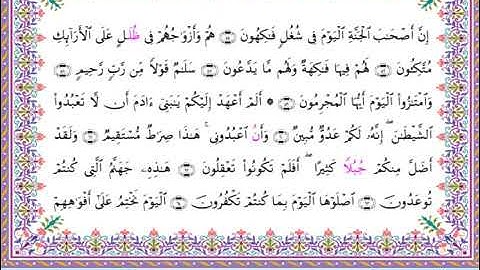 إِنَّ أَصْحَٰبَ ٱلْجَنَّةِ ٱلْيَوْمَ فِى شُغُلٍ فَٰكِهُونَ ۝ هُمْ وَأَزْوَٰجُهُمْ فِى ظُلَلٍ عَلَى ٱلْأَرَآئِكِ
مُتَّكِـُٔونَ ۝ لَهُمْ فِيهَا فَٰكِهَةٌ وَلَهُم مَّا يَدَّعُونَ ۝ سَلَٰمٌ قَوْلًا مِّن رَّبٍّ رَّحِيمٍ ۝
وَٱمْتَٰزُوا۟ ٱلْيَوْمَ أَيُّهَا ٱلْمُجْرِمُونَ ۝ ۞ أَلَمْ أَعْهَدْ إِلَيْكُمْ يَٰبَنِىٓ ءَادَمَ أَن لَّا تَعْبُدُوا۟
ٱلشَّيْطَٰنَ ۖ إِنَّهُۥ لَكُمْ عَدُوٌّ مُّبِينٌ ۝ وَأَنُ ٱعْبُدُونِى ۚ هَٰذَا صِرَٰطٌ مُّسْتَقِيمٌ ۝ وَلَقَدْ
أَضَلَّ مِنكُمْ جُبُلًا كَثِيرًا ۖ أَفَلَمْ تَكُونُوا۟ تَعْقِلُونَ ۝ هَٰذِهِۦ جَهَنَّمُ ٱلَّتِى كُنتُمْ
تُوعَدُونَ ۝ ٱصْلَوْهَا ٱلْيَوْمَ بِمَا كُنتُمْ تَكْفُرُونَ ۝ ٱلْيَوْمَ نَخْتِمُ عَلَىٰٓ أَفْوَٰهِهِمْ